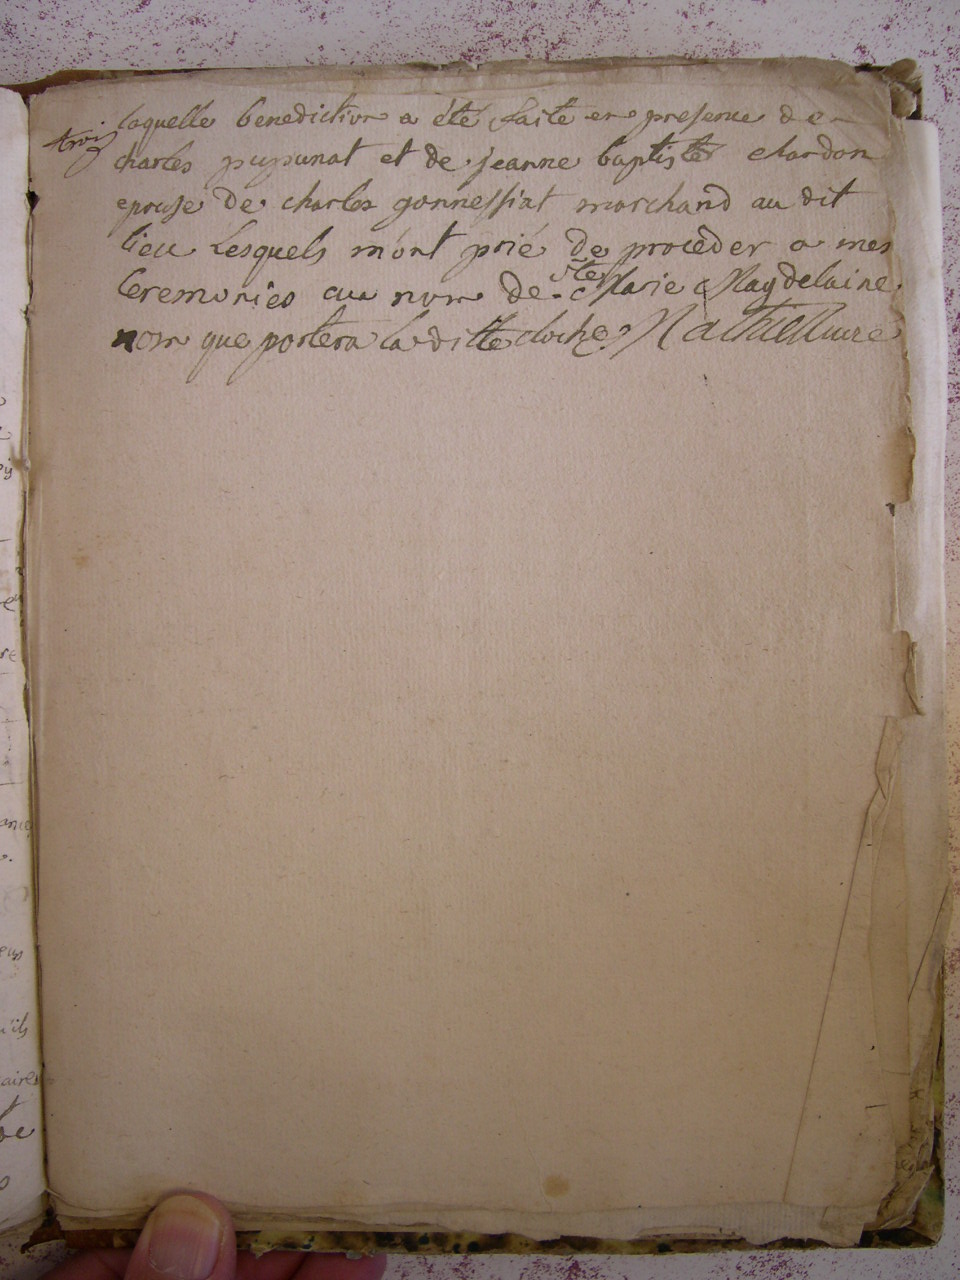 trois
laquelle benediction a été faite en presence de
charles puypunat et de jeanne baptiste chardon
epouse de charles gonnessiat marchand au dit
lieu Lesquels m'ont prié de proceder a mes
Ceremonies au nom de ste Marie Magdelaine
nom que portera la ditte cloche Mathieu Curé